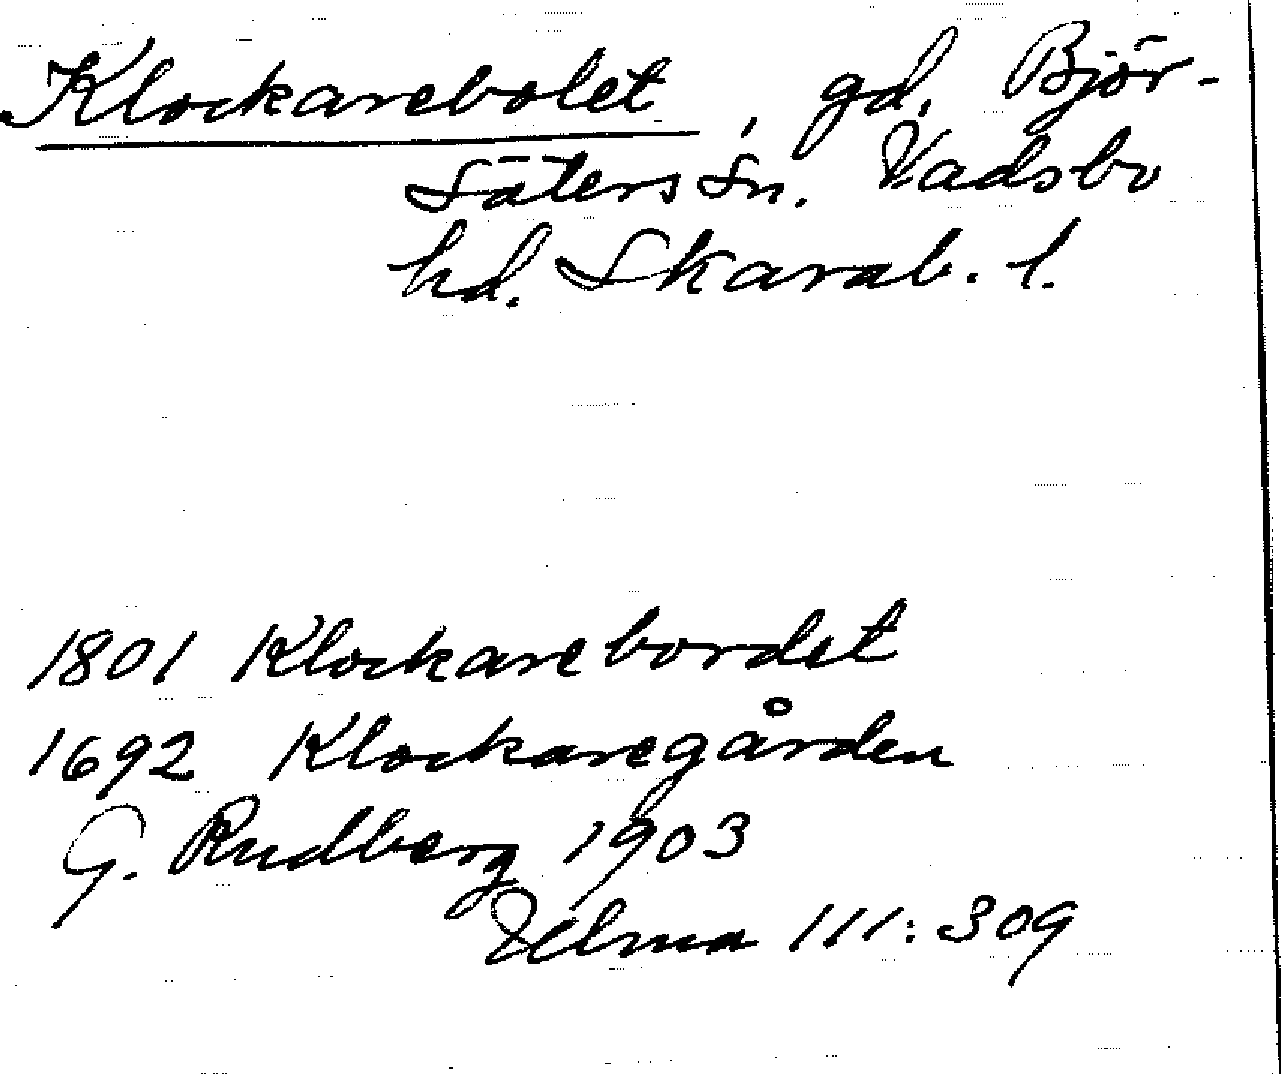 Klockarebolet, gd. Björ-
säters sn. Vadsbo
hd. Skarab. l.
1801 Klockarebordet
1692 Klockaregården
G. Rudberg 1903
Ulma 111:309